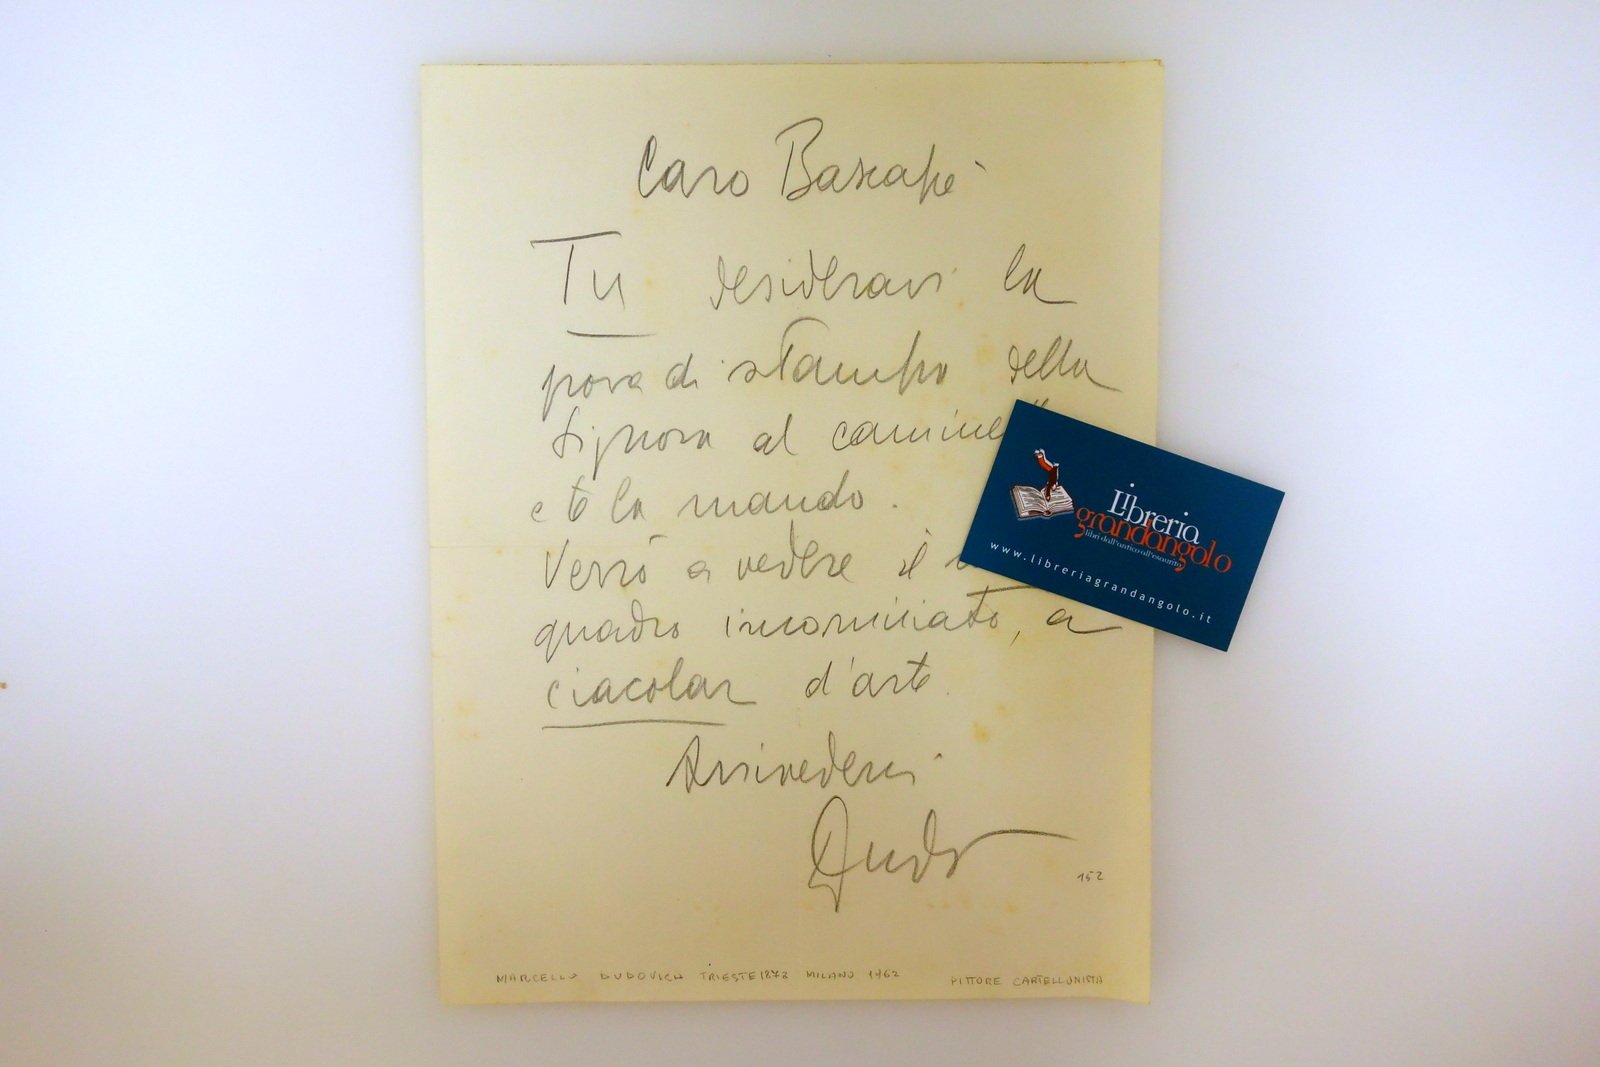 Caro Bascapè
Tu desideravi la
prova di stampa della
Signora al
e te la mando.
Verrò a vedere il
quadro incorniciato, a
ciacolar d'arte.
Arrivederci
Dudo
152
MARCELLO DUDOVICH TRIESTE 1878 MILANO 1962 PITTORE CARTELLONISTA
Libreria
grandangolo
libri dall'antico all'esaurito
www.libreriagrandangolo.it